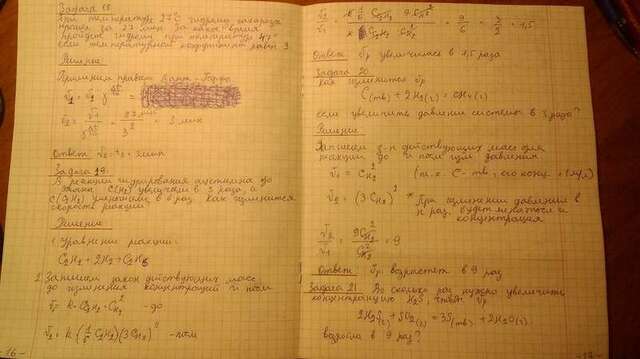 Задача 18
При температуре 27°C гидролиз сахарозы
прошел за 27 мин. За какое время
пройдет гидролиз при температуре 47°
если температурный коэффициент равен 3
Решение
Применим правило Вант-Гоффа
= 3 мин
Ответ: = 3 мин
Задача 19.
В реакции гидрирования ацетилена до
этана C(H₂) увеличили в 3 раза, а
C(C₂H₂) уменьшили в 6 раз. Как изменится
скорость реакции
Решение
1. Уравнение реакции:
C₂H₂ + 2H₂ = C₂H₆
2. Запишем закон действующих масс
до изменения концентраций и после
- до
- после
16
= 9/6 = 3/2 = 1,5
Ответ: увеличилась в 1,5 раза
Задача 20
как изменится
C(тв) + 2H₂(г) = CH₄(г)
если увеличить давление системы в 3 раза?
Решение
Запишем з-н действующих масс для
реакции до и после изм. давления
V₁ = C²H₂
V₂ = (3CH₂)²
* При изменении давления в
n раз, будет меняться и
концентрация
= 9
Ответ: возрастет в 9 раз
Задача 21 Во сколько раз нужно увеличить
концентрацию H₂S, чтобы
2H₂S(г) + SO₂(г) = 3S(тв) + 2H₂O(г)
возросла в 9 раз?